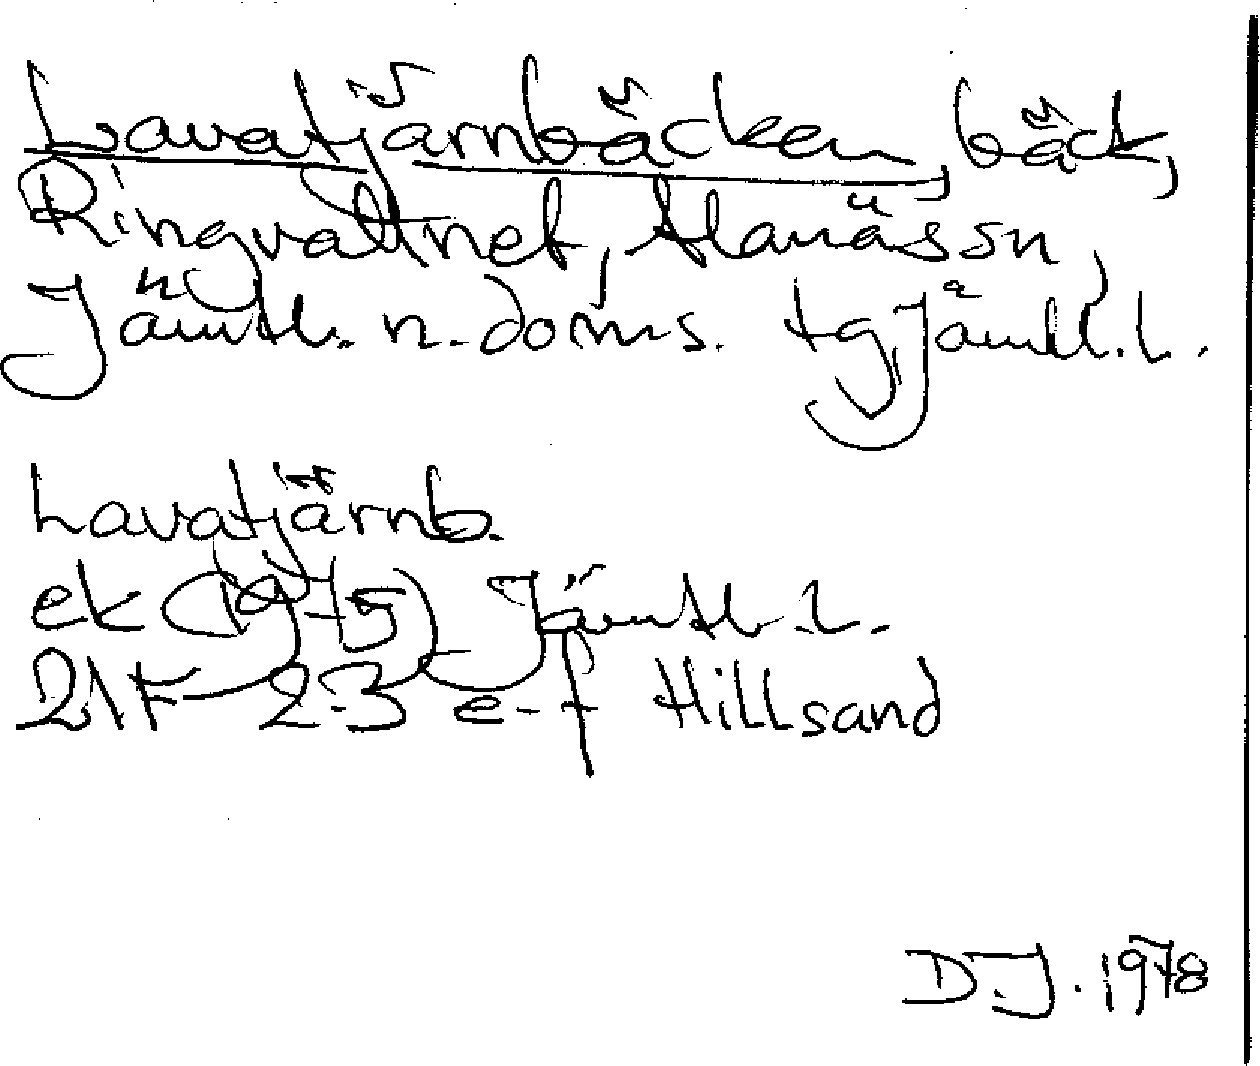 Lavatjärnbäcken, bäck,
Ringvattnet, Alanäs sn,
Jämtl. n. doms. tg, Jämtl. l.
Lavatjärnb.
ek (1975) Jämtl. l.
21F 2-3 e-f Hillsand
D.J. 1978